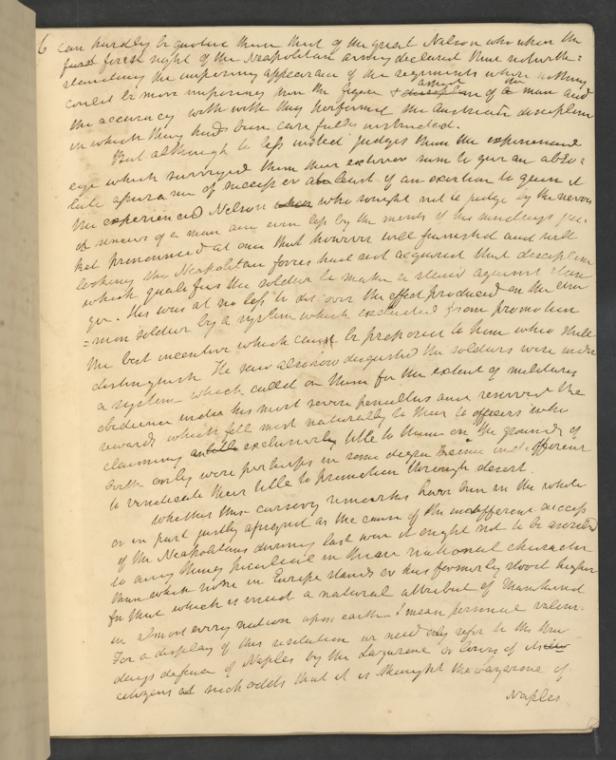 6 can hardly be quoted than that of the great Nelson who when the
first sight of the Neapolitan army declared that notwith=
standing the imposing appearance of the regiments where nothing
could be more imposing than the figure & of a man and
the accuracy with with they performed the Austrian discipline
in which they had been carefully instructed.
But although to less noted judges than the experienced
eye which surveyed them their exterior seem to give an abso=
lute of success or at least of an exertion to gain it
the experienced Nelson who sought not to judge by the nerves
or sinews of a man any even less by the merits of his
pronounced at once that however well furnished and well
looking the Neapolitan forces had not acquired that discipline
which qualifies the soldier to make a stand against
. He was at no loss to discover the effect produced on the com
=mon soldier by a system which excluded from promotion
the best incentive which can be proposed to him who shall
distinguish. He saw also how disgusted the soldiers were under
a system which called on them for the extent of military
obedience under the most severe penalties and reserved the
rewards which fell most naturally to their officers who
claiming exclusively title to them on the grounds of
birth only were perhaps in some degree indifferent
to vindicate their title to promotion through desert.
Whether these cursory remarks have been on the whole
or in part justly assigned as the cause of the indifferent success
of the Neapolitans during last war it ought not to be ascribed
to any thing peculiar in their national character
than which none in Europe stands or has formerly stood higher
for that which is indeed a natural attribute of mankind
in almost every nation upon earth I mean personal valour.
For a display of this resolution we need only refer to the
defence of Naples by the Lazaroni or lowers of its
citizens at such odds that it is thought the Lazaroni of
Naples